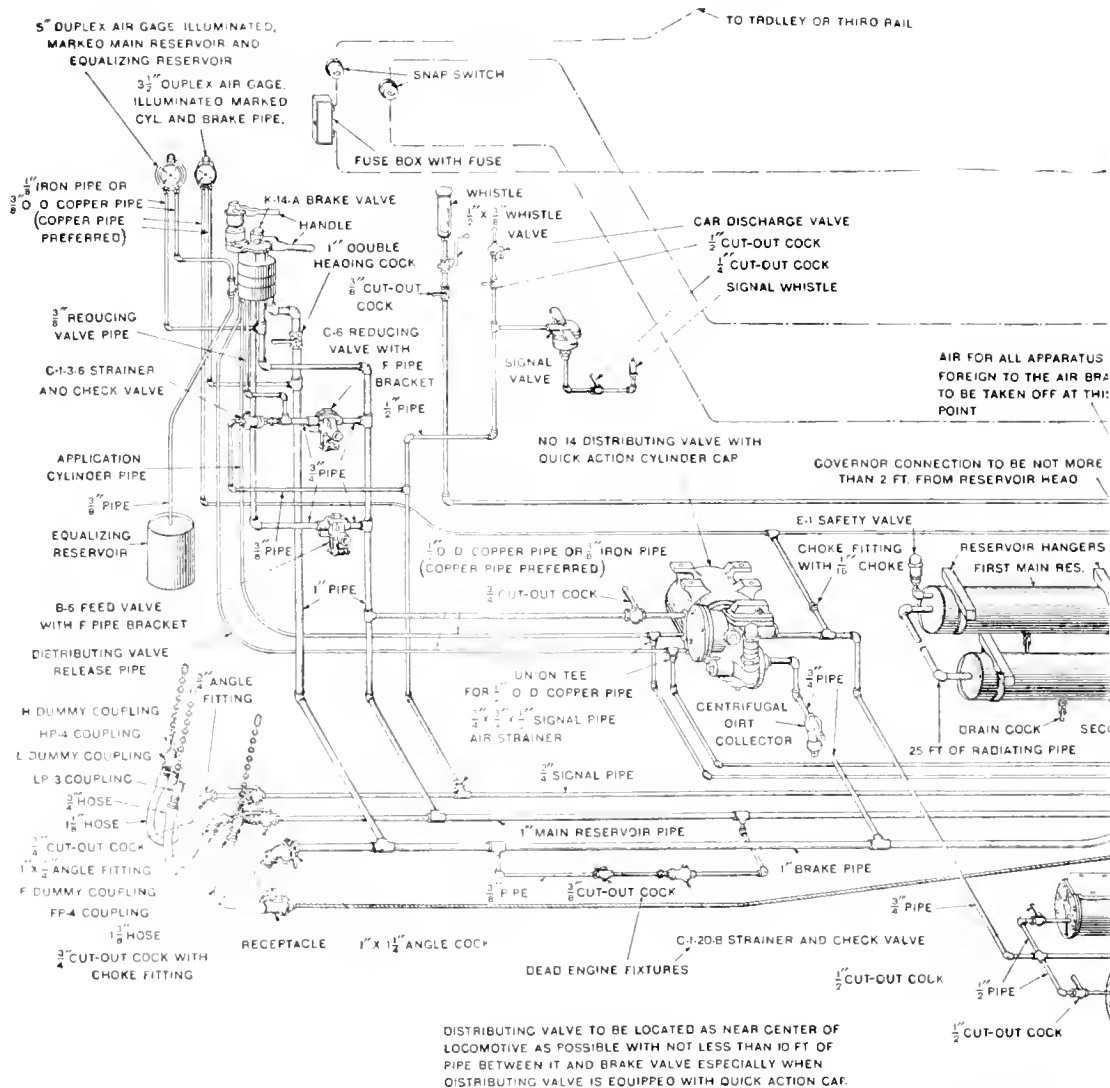 5" DUPLEX AIR GAGE ILLUMINATED,
MARKED MAIN RESERVOIR AND
EQUALIZING RESERVOIR
3 1/2" DUPLEX AIR GAGE.
ILLUMINATED MARKED
CYL. AND BRAKE PIPE.
TO TROLLEY OR THIRD RAIL
SNAP SWITCH
FUSE BOX WITH FUSE
1/8" IRON PIPE OR
3/8" O D COPPER PIPE
(COPPER PIPE
PREFERRED)
K-14-A BRAKE VALVE
HANDLE
1" DOUBLE
HEADING COCK
WHISTLE
1/2" X 3/8" WHISTLE
VALVE
3/8" CUT-OUT
COCK
CAR DISCHARGE VALVE
1/2" CUT-OUT COCK
1/4" CUT-OUT COCK
SIGNAL WHISTLE
3/8" REDUCING
VALVE PIPE
C-6 REDUCING
VALVE WITH
F PIPE
BRACKET
SIGNAL
VALVE
C-1-3-6 STRAINER
AND CHECK VALVE
1/2" PIPE
AIR FOR ALL APPARATUS
FOREIGN TO THE AIR BRA
TO BE TAKEN OFF AT THIS
POINT
NO 14 DISTRIBUTING VALVE WITH
QUICK ACTION CYLINDER CAP
APPLICATION
CYLINDER PIPE
3/4" PIPE
GOVERNOR CONNECTION TO BE NOT MORE
THAN 2 FT. FROM RESERVOIR HEAD
3/8" PIPE
EQUALIZING
RESERVOIR
3/8" PIPE
E-1 SAFETY VALVE
O D COPPER PIPE OR 3/8" IRON PIPE
(COPPER PIPE PREFERRED)
CHOKE FITTING
WITH 1/16" CHOKE
RESERVOIR HANGERS
FIRST MAIN RES.
3/4" CUT-OUT COCK
1" PIPE
B-6 FEED VALVE
WITH F PIPE BRACKET
DISTRIBUTING VALVE
RELEASE PIPE
3/4" ANGLE
FITTING
UNION TEE
FOR O D COPPER PIPE
SIGNAL PIPE
AIR STRAINER
3/4" PIPE
CENTRIFUGAL
DIRT
COLLECTOR
DRAIN COCK
SECO
25 FT OF RADIATING PIPE
H DUMMY COUPLING
HP-4 COUPLING
L DUMMY COUPLING
LP 3 COUPLING
3/4" HOSE
1 1/8" HOSE
3/4" SIGNAL PIPE
CUT-OUT COCK
ANGLE FITTING
F DUMMY COUPLING
FP-4 COUPLING
1 3/8" HOSE
3/4" CUT-OUT COCK WITH
CHOKE FITTING
1" MAIN RESERVOIR PIPE
1" BRAKE PIPE
3/8" PIPE
3/8" CUT-OUT COCK
3/4" PIPE
RECEPTACLE
1" X 1 1/4" ANGLE COCK
C-1-20-8 STRAINER AND CHECK VALVE
DEAD ENGINE FIXTURES
1/2" CUT-OUT COCK
1/2" PIPE
1/2" CUT-OUT COCK
DISTRIBUTING VALVE TO BE LOCATED AS NEAR CENTER OF
LOCOMOTIVE AS POSSIBLE WITH NOT LESS THAN 10 FT OF
PIPE BETWEEN IT AND BRAKE VALVE ESPECIALLY WHEN
DISTRIBUTING VALVE IS EQUIPPED WITH QUICK ACTION CAP.